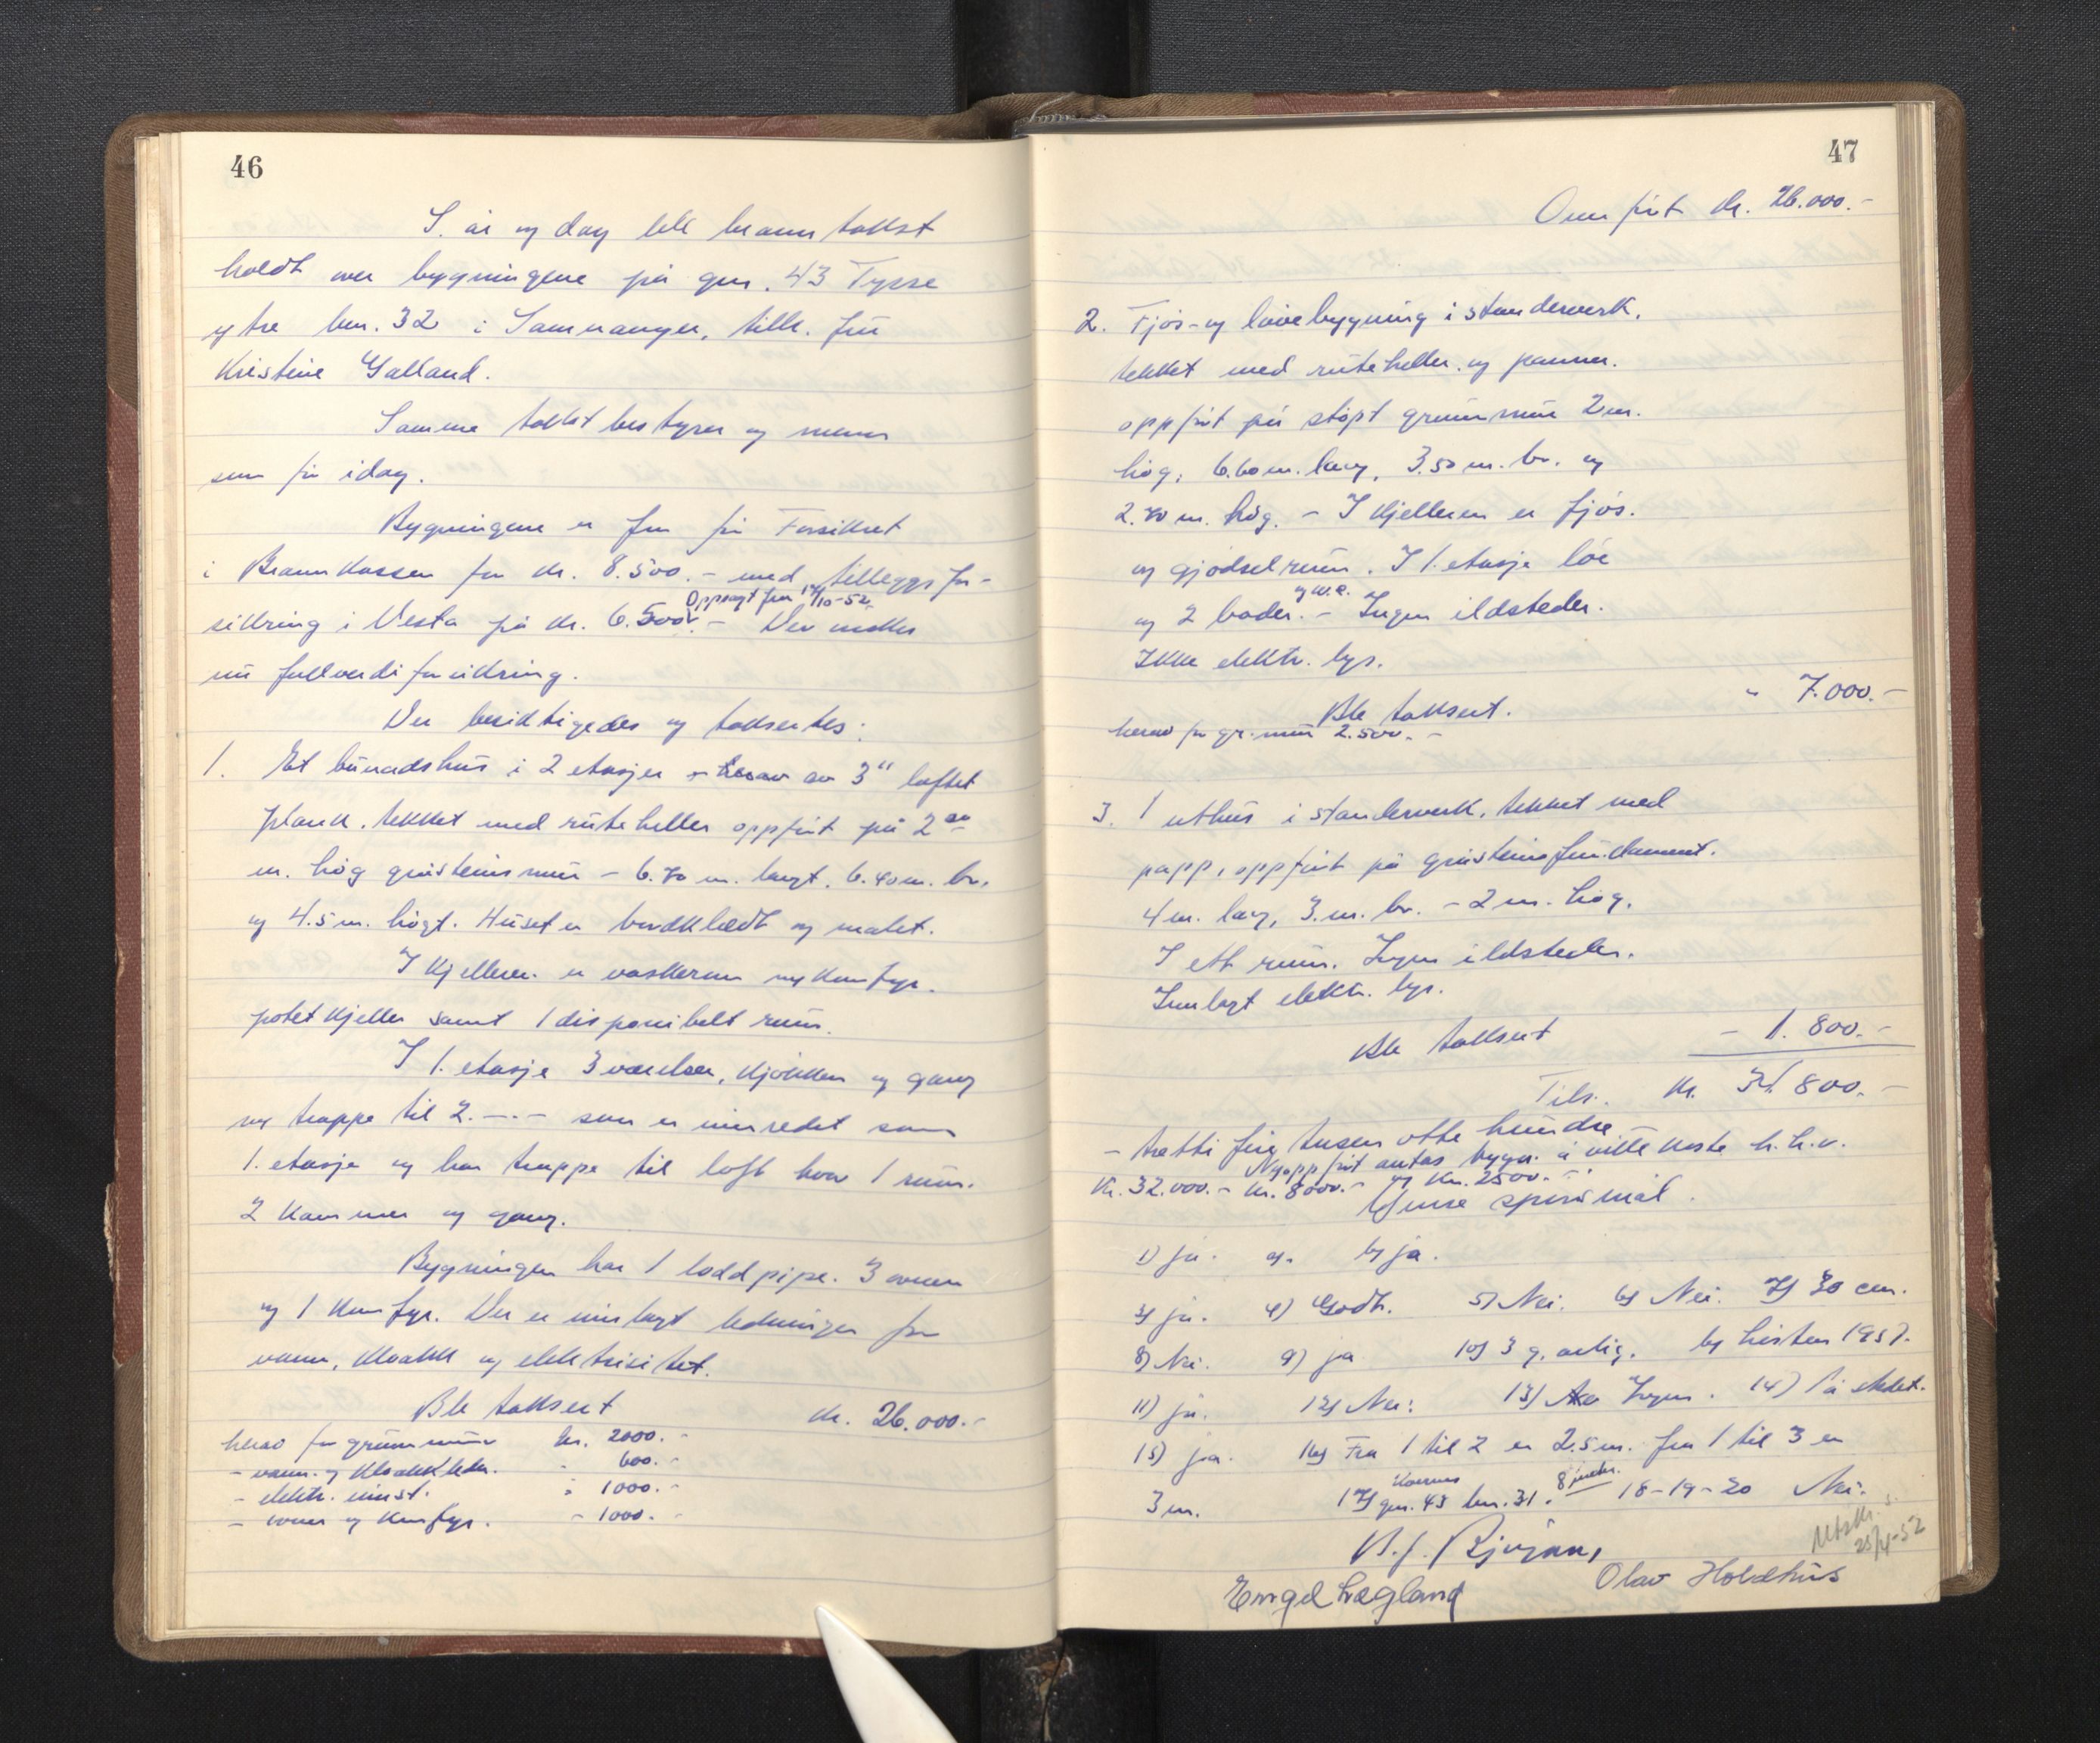 46
S. år og dag ble branntakst
holdt over bygningene på gnr. 43 Tysse
ytre bnr. 32 i Samnanger, tilh. frú
Kristine Galland.
Samme takstbestyrer og menn
som før idag.
Bygningene er før Forsikret
i Brannkassen for kr. 8.500.- med tilleggsfor-
Oppsagt fra 14/10-52
sikring i Vesta på kr. 6.500.- Der ønskes
nú fullverdiforsikring.
Der besiktigedes og taksertes:
1. Et búnadshús i 2 etasjer av 3" laftet
plank, tekket med rúteheller oppført på 2
m. høg gråsteinsmúr - 6.70 m. langt, 6.40 m. br.
og 4.5 m. høgt. Húset er bordkledt og malet.
I Kjelleren er vaskerom m/ Komfyr.
potetkjeller samt 1 disponibelt rúm.
I 1. etasje 3 værelser, kjøkken og gang
m/ trappe til 2. -.- som er innredet som
1. etasje og har trappe til loft hvor 1 rúm.
2 kammer og gang.
Bygningen har 1 lodd pipe. 3 ovner
og 1 Komfyr. Der er innlagt ledninger for
vann, kloakk og elektrisitet.
Ble taksert kr. 26.000.-
herav for grúnnmúr kr. 2000.-
- vann- og kloakkledn. - 600.-
- elektr. innst. - 1000.-
- ovner og Komfyr. - 1000.-
47
Overført kr. 26.000.-
2. Fjøs- og løvebygning i standerverk.
tekket med rúteheller og panner.
oppført på støpt grúnnmúr 2 m.
høg, 6.60 m. lang, 3.50 m. br. og
2.70 m. høg. - I Kjelleren er fjøs.
og gjødselrúm. I 1. etasje løe
og w.c.
og 2 boder. - Ingen ildsteder.
Ikke elektr. lys.
Ble taksert. " 7.000.-
herav for gr.múr 2.500.-
3. 1 uthús i standerverk, tekket med
papp, oppført på gråsteinsfúndament.
4 m. lang, 3. m. br. - 2 m. høg.
I ett rúm. Ingen ildsteder.
Innlagt elektr. lys.
Ble taksert - 1.800.-
Tils. kr. 34.800.-
- trettifire tusen otte húndre
Nyoppført antas bygn. å ville koste h.h.v.
Kr. 32.000.- kr. 8000.- og kr. 2500.-
Ymse spørsmål.
1) ja. a) b) ja.
3) ja. 4) Godt. 5) Nei. 6) Nei. 7) 30 cm.
8) Nei. 9) ja 10) 3 g. årlig. b) høsten 1951.
11) ja. 12) Nei. 13) Ingen. 14) På stedet.
15) ja. 16) Fra 1 til 2 er 2.5 m. fra 1 til 3 er
3 m. 17) gnr. 43 bnr. 31. 8 meter. 18-19-20 Nei.
Engel Lægland
Olav Holdhús
25/4-52